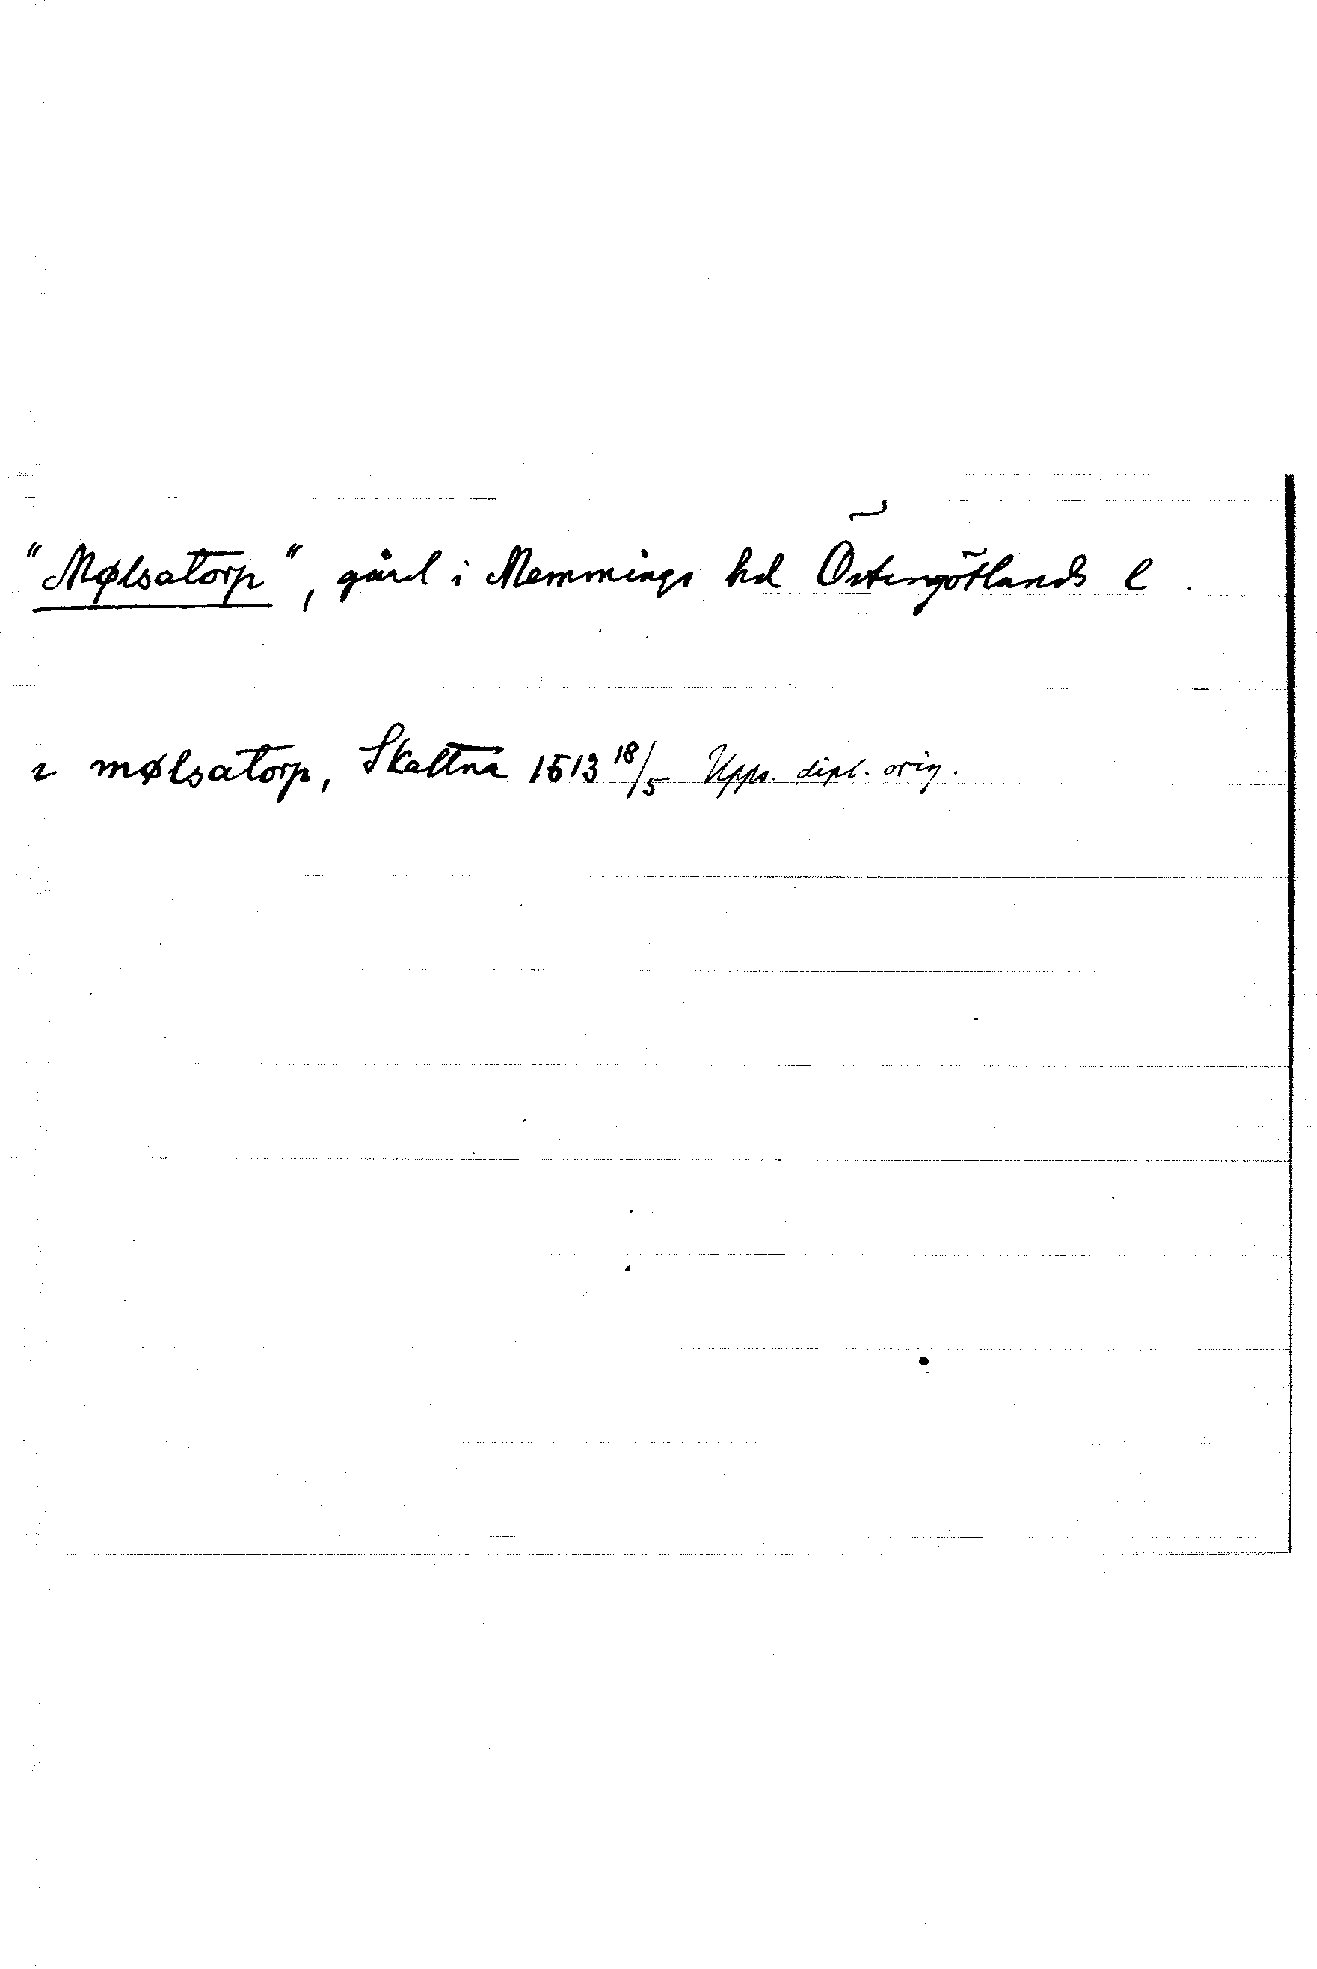 "Mølsatorp", gård i Memmings hd Östergötlands l.
i mølsatorp, Skeltna 1513 18/5 Upps. dipl. orig.